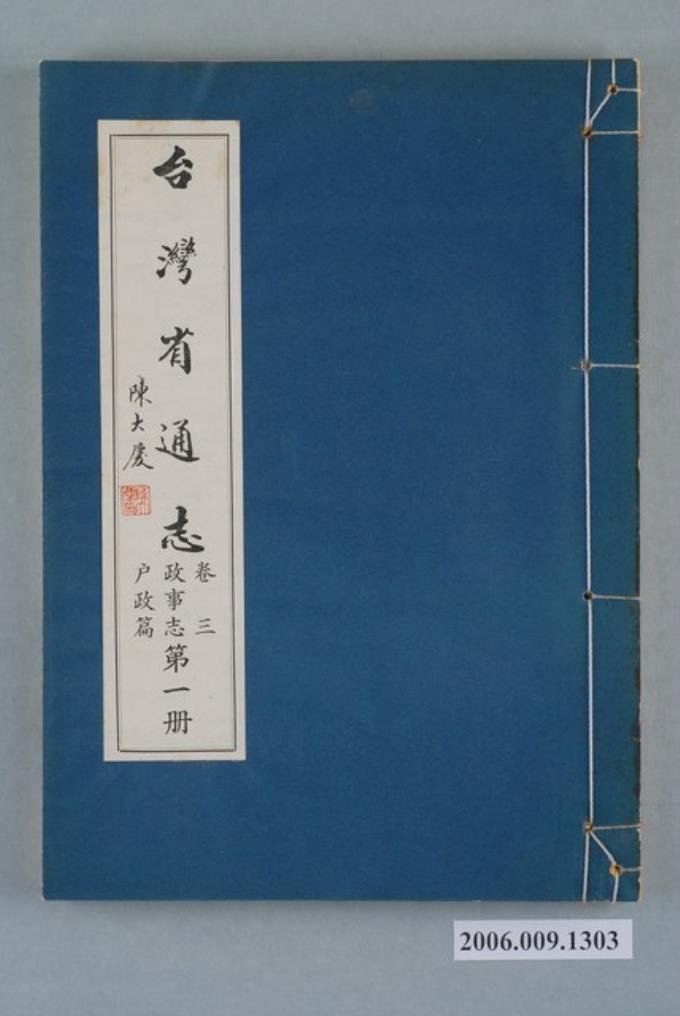 台灣省通志
卷三
政事志
户政篇
第一册
陳大慶
2006.009.1303